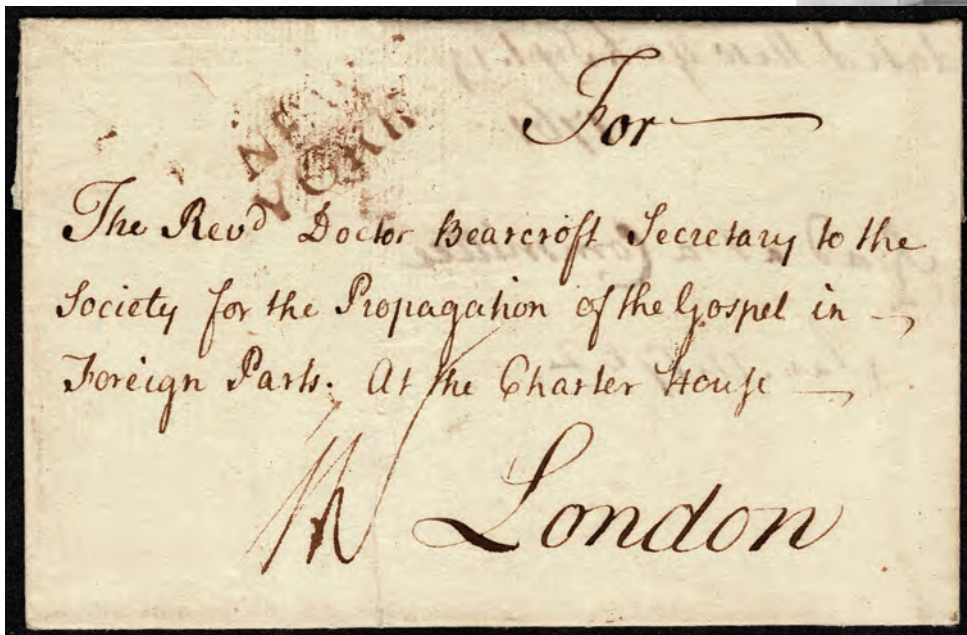 For
NEW
YORK
The Revd Doctor Bearcroft Secretary to the
Society for the Propagation of the Gospel in
Foreign Parts. At the Charter House
London